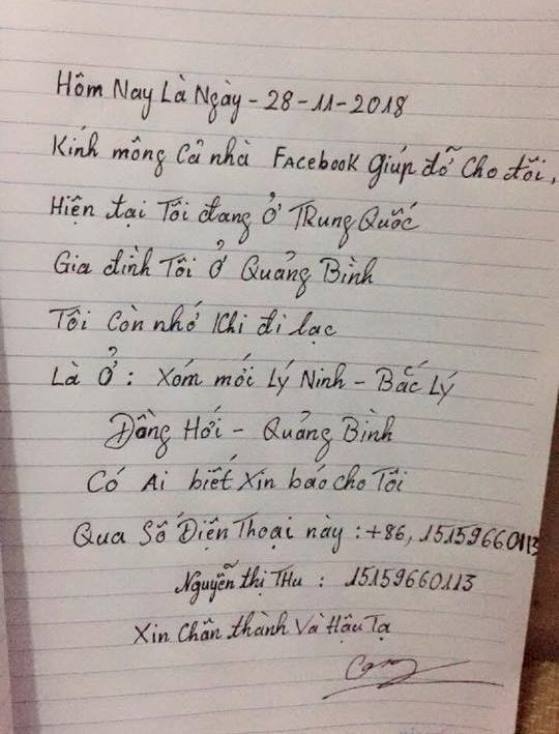 Hôm Nay Là Ngày - 28 - 11 - 2018
Kính mông Cả nhà FACebook giúp đỡ Cho tôi,
Hiện tại Tôi đang Ở TRung Quốc
Gia đình Tôi Ở Quảng Bình
Tôi Còn nhớ Khi đi lạc
Là Ở : Xóm mới Lý Ninh - Bắc Lý
Đồng Hới - Quảng Bình
Có Ai biết Xin báo cho Tôi
Qua Số Điện Thoại này : +86, 15159660113
Nguyễn thị THu : 15159660113
Xin Chân thành Và Hậu Tạ